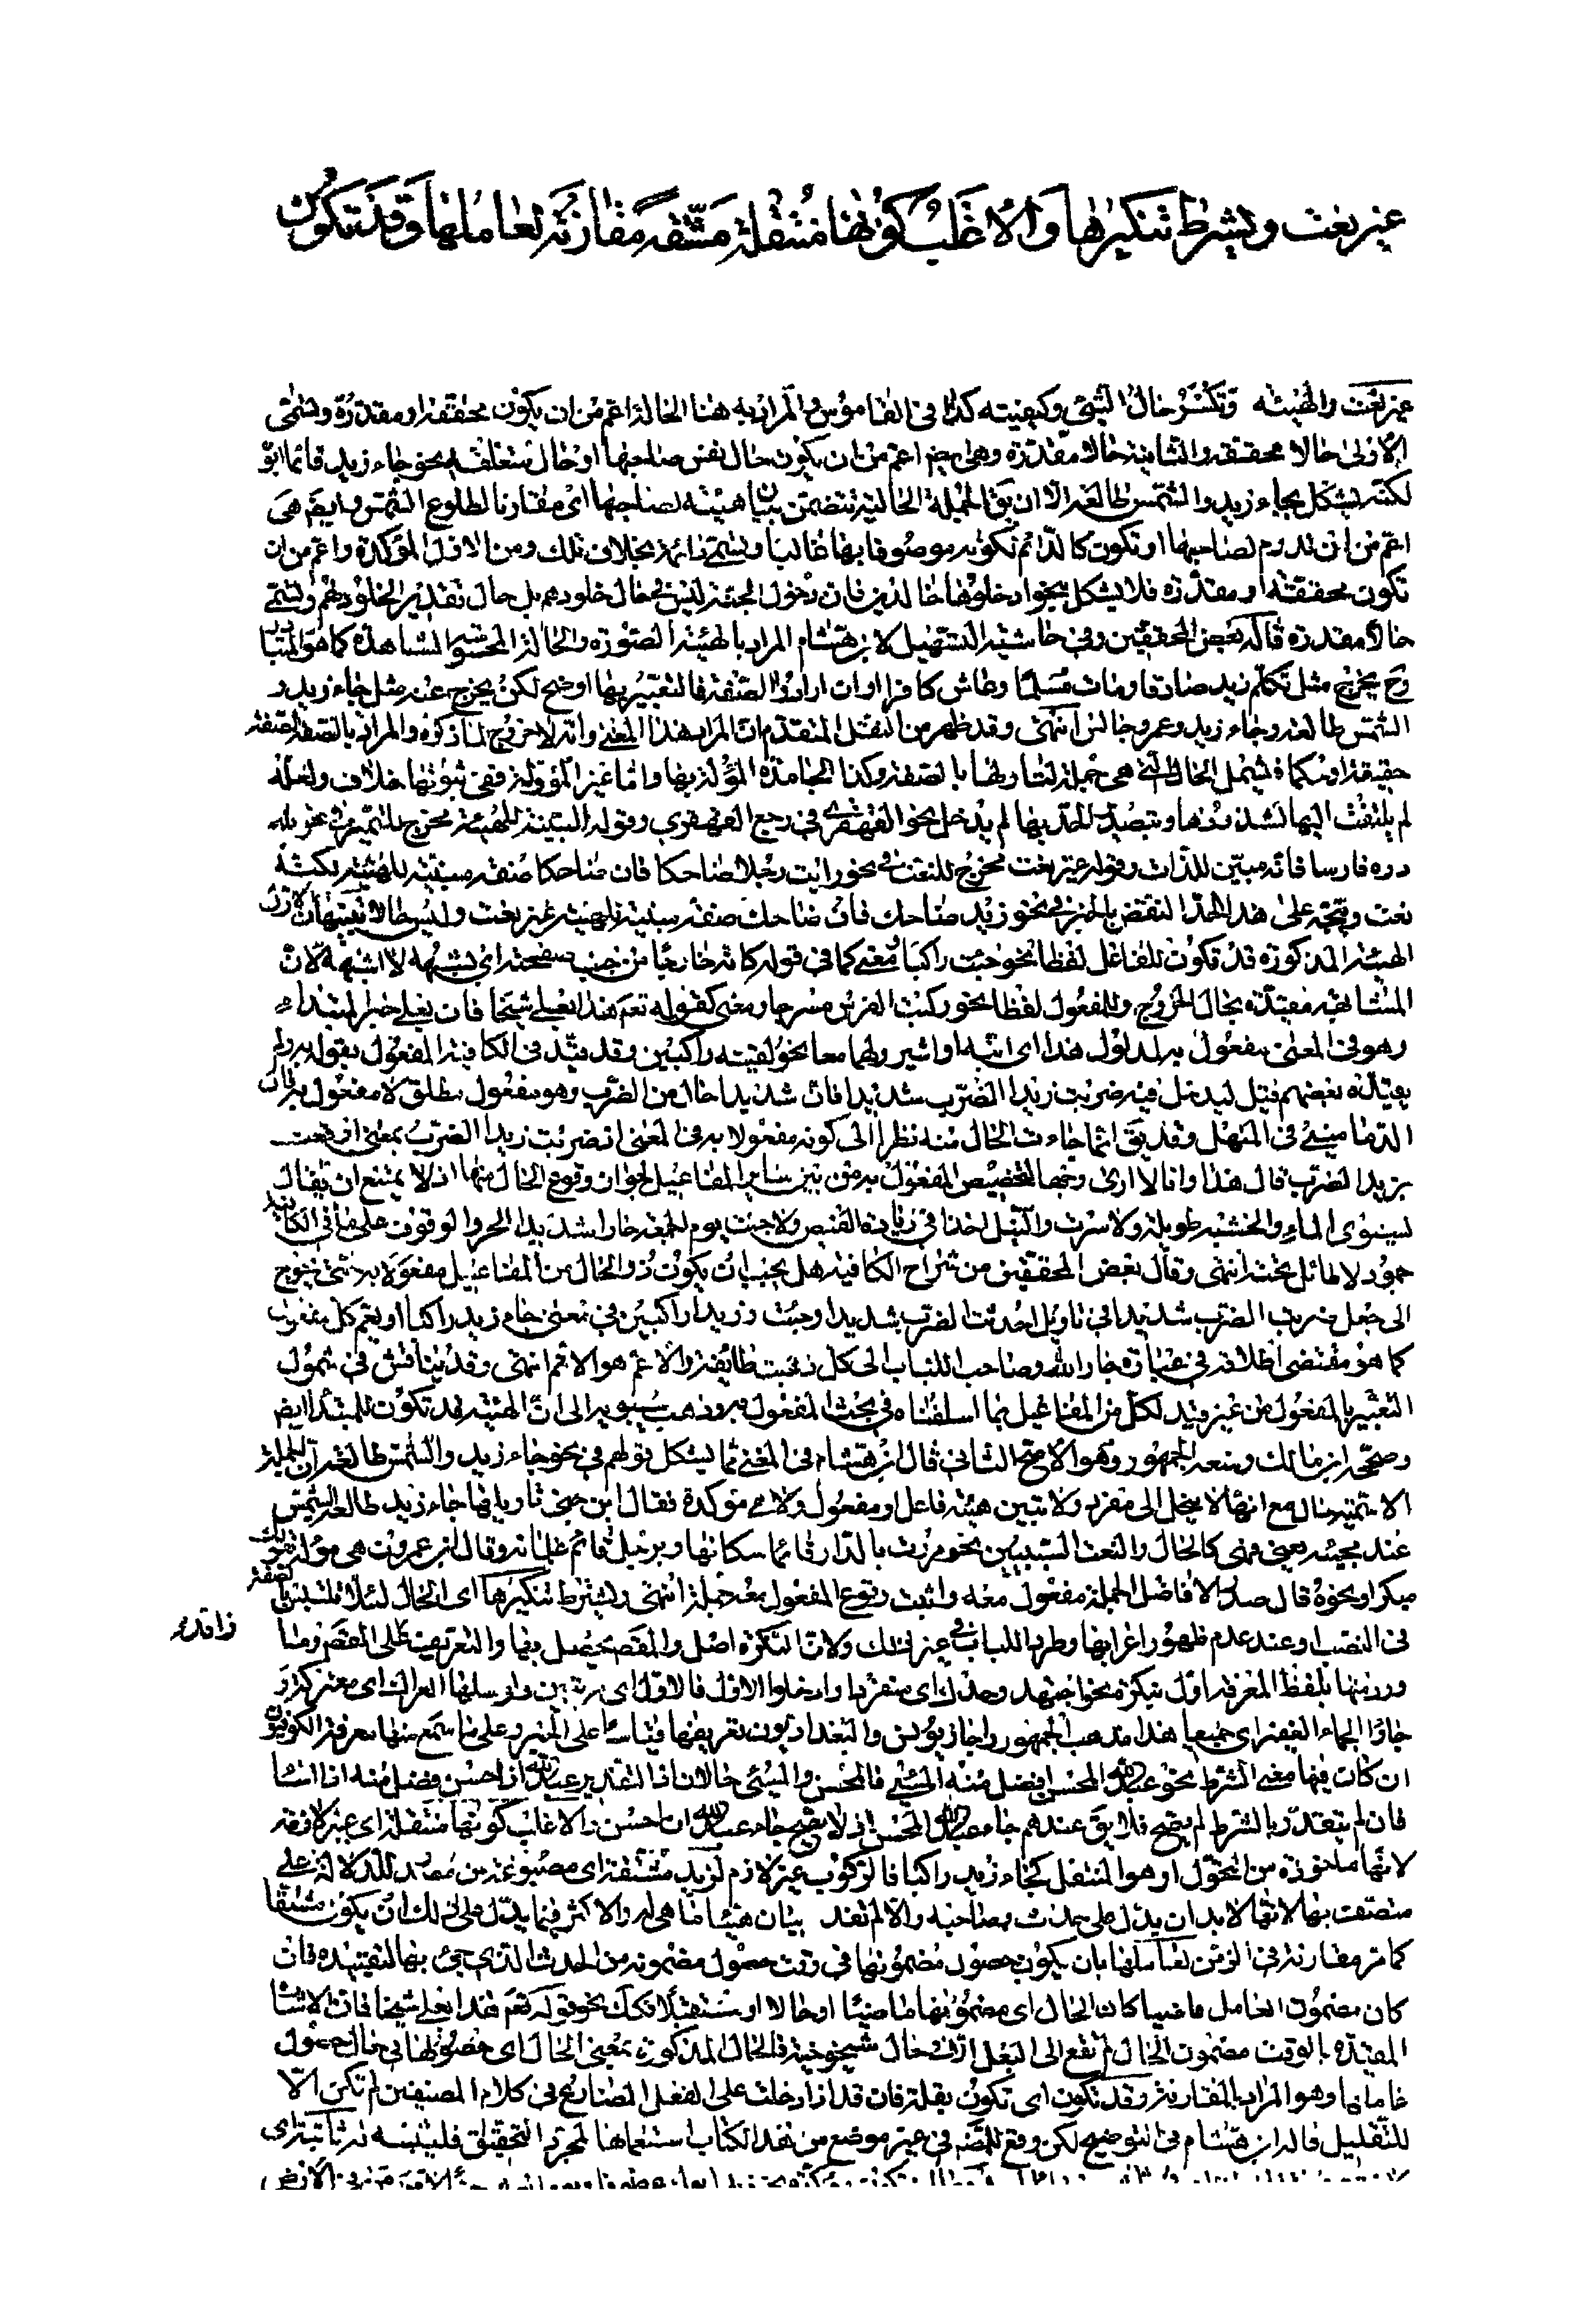 غير نعت ويشترط تنكيرها والاغلب كونها منتقلة مشتقة مقارنة لعاملها وقد تكون
غير نعت والهيئة وتكسر حال الشئ وكيفيته كذا في القاموس والمراد به هنا الحالة اعم من ان يكون محققة او مقدرة وتسمى
الاولى حالا محققة والثانية حالا مقدرة وهى ايضم اعم من ان يكون حال نفس صاحبها او حال متعلقه نحو جاء زيد قائما ابوه
لكنه يشكل بجاء زيد والشمس طالعة الا ان يق الجملة الحالية تتضمن بيان هيئة لصاحبها اى مقارنا لطلوع الشمس وايضم هى
اعم من ان تدوم لصاحبها او تكون كالدائم لكونه موصوفا بها غالبا وتسمى دائمة بخلاف تلك ومن الاول المؤكدة واعم من ان
تكون محققة او مقدرة فلا يشكل بنحو ادخلوها خالدين فان دخول الجنة ليس في حال خلودهم بل حال تقدير الخلود لهم وتسمى
حالا مقدرة قاله بعض المحققين وفي حاشية التسهيل لابن هشام المراد بالهيئة الصورة والحالة المحسوسة المشاهدة كما هو المتبادر
وح يخرج مثل تكلم زيد صادقا ومات مسلما وعاش كافرا وان ارادوا الصفة فالتعبير بها اوضح لكن يخرج عنه مثل جاء زيد و
الشمس طالعة وجاء زيد وعمرو جالس انتهى وقد ظهر من النقل المتقدم ان المراد هذا المعنى وانه لا خروج لما ذكره والمراد بالصفة الصفة
حقيقة او حكما فيشمل الحال التي هي جملة لتاويلها بالصفة وكذا الجامدة المؤلة بها واما غير المؤولة ففي ثبوتها خلاف ولعله
لم يلتفت اليها لشذوذها وبتصدير الحد بها لم يدخل نحو القهقرى في رجع القهقرى وقوله المبينة للهيئة مخرج للتميز في نحو لله
دره فارسا فانه مبين للذات وقوله غير نعت مخرج للنعت في نحو رايت رجلا ضاحكا فان ضاحكا صفة مبينة للهيئة لكنه
نعت ويتجه على هذا الحد النقض بالخبر في نحو زيد ضاحك فان ضاحك صفة مبينة للهيئة غير نعت وليس حالا
الهيئة المذكورة قد تكون للفاعل لفظا نحو جئت راكبا ومعنى كما في قوله كانه خارجا من جنب صفحته اى يشبهه لا اشبهه لان
المشابهة مقيدة بحال الخروج وللمفعول لفظا نحو ركبت الفرس مسرجا ومعنى كقوله تعم هذا بعلي شيخا فان بعلي خبر المبتداء
وهو في المعنى مفعول به لمدلول هذا اى انبه او اشير ولهما معا نحو لقيته راكبين وقد قيد في الكافية المفعول بقوله به ولم
يقيده بعضهم قيل ليدخل فيه ضربت زيدا الضرب شديدا فان شديدا حال من الضرب وهو مفعول مطلق لا مفعول به قال
الدماميني في المنهل وقد يق انما جاءت الحال منه نظرا الى كونه مفعولا به في المعنى اذ ضربت زيدا الضرب بمعنى اوقعت
بزيد الضرب قال هذا وانا لا ارى وجها لتخصيص المفعول به من بين ساير المفاعيل لجواز وقوع الحال منها اذ لا يمتنع ان يقال
يستوى الماء والخشبة طويلة ولا سرت والنيل اخذا في زيادة الفيض ولا جئت يوم الجمعة حارا شديد الحر والوقوف على ما في الكافية
جمود لا طائل تحته انتهى وقال بعض المحققين من شراح الكافية هل يجب ان يكون ذو الحال من المفاعيل مفعولا به حتى نحوج
الى جعل ضربت الضرب شديدا في تاويل احدثت الضرب شديدا وجئت وزيدا راكبين في معنى جاء زيد راكبا او يعم كل مفعول
كما هو مقتضى اطلاقه في عبارة جار الله وصاحب اللباب الى كل ذهبت طائفة والاعم هو الاتم انتهى وقد يناقش في شمول
التعبير بالمفعول من غير قيد لكل من المفاعيل بما اسلفناه في بحث المفعول به وذهب سيبويه الى ان الهيئة قد تكون للمبتدأ ايضم
وصححه ابن مالك ومنعه الجمهور وهو الاصح الثاني قال ابن هشام في المغني مما يشكل قولهم في نحو جاء زيد والشمس طالعة ان الجملة
الاسمية حال مع انها لا ينحل الى مفرد ولا تبين هيئة فاعل او مفعول ولا هي مؤكدة فقال ابن جني تاويلها جاء زيد طالعة الشمس
عند مجيئه يعني فهي كالحال والنعت السببيين نحو مررت بالدار قائما سكانها وبرجل قائم غلمانه وقال ابن عمرون هي مؤلة بقولك
مبكرا ونحوه قال صدر الافاضل الجملة مفعول معه واثبت وقوع المفعول معه جملة انتهى ويشترط تنكيرها اى الحال لئلا تلتبس بالصفة
في النصب او عند عدم ظهور اعرابها وطرد اللباب في غير ذلك ولان النكرة اصل والمقصم يحصل بها والتعريف زائد على المقصم وما
ورد منها بلفظ المعرفة اول بنكرة نحو اجتهد وحدك اى منفردا وادخلوا الاول فالاول اى مرتبين وارسلها العراك اى معتركة و
جاؤا الجماء الغفير اى جميعا هذا مذهب الجمهور واجاز يونس والبغداديون تعريفها قياسا على الخبر وعلى ما سمع منها معرفة الكوفيون
ان كان فيها معنى الشرط نحو عبد الله المحسن افضل منه المسئ فالمحسن والمسئ حالان اذ التقدير عبد الله اذا احسن افضل منه اذا اساء
فان لم يتقدر بالشرط لم يصح فلا يق عندهم جاء عبد الله المحسن اذ لا يصح جاء عبد الله ان احسن والاغلب كونها منتقلة اى غير لازمة
لانها ماخوذة من التحول او هو المنتقل كجاء زيد راكبا فالركوب غير لازم لزيد مشتقة اى مصوغة من مصدر للدلالة على
متصف بها لانها لا بد ان يدل على حدث وصاحبه والا لم تفد بيان هيئة ما هي له والاكثر فيما يدل على ذلك ان يكون مشتقا
كما مر مقارنة في الزمن لعاملها بان يكون حصول مضمونها في وقت حصول مضمونه من الحدث الذي جئ بها لتقييده فان
كان مضمون العامل ماضيا كان الحال اى مضمونها ماضيا او حالا او مستقبلا فكك نحو قوله تعم هذا بعلي شيخا فان الاشارة
المقيدة بالوقت مضمون الحال لم تقع الى البعل الا في حال شيخوخيته فالحال المذكورة بمعنى الحال اى حصولها في حال حصول
عاملها وهو المراد بالمقارنة وقد تكون اى تكون بقلة فان قد اذا دخلت على الفعل المضارع في كلام المصنفين لم تكن الا
للتقليل قاله ابن هشام في التوضيح لكن وقع للمصم في غير موضع من هذا الكتاب استعمالها لمجرد التحقيق فليتنبه له